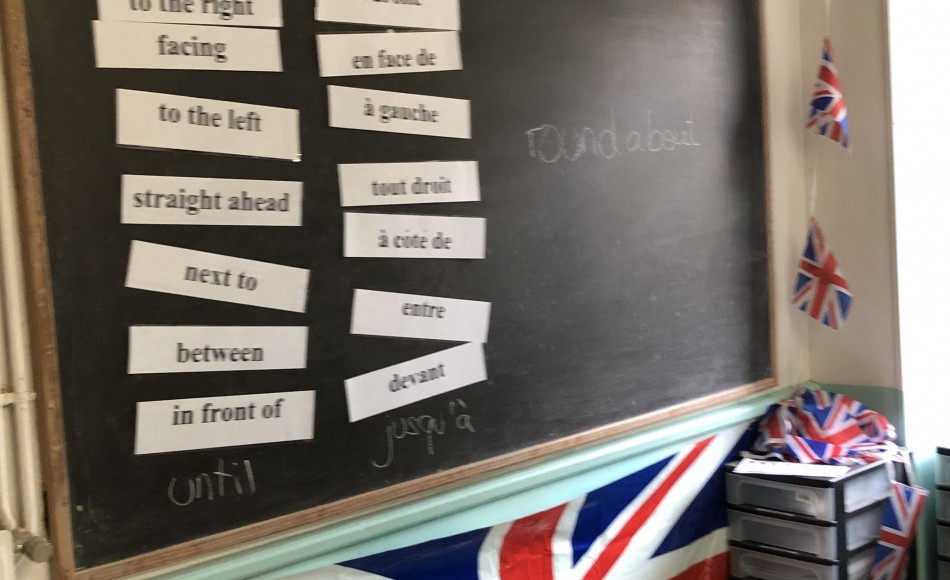 to the right
facing
to the left
straight ahead
next to
between
in front of
until
en face de
à gauche
tout droit
à côté de
entre
devant
jusqu'à
roundabout